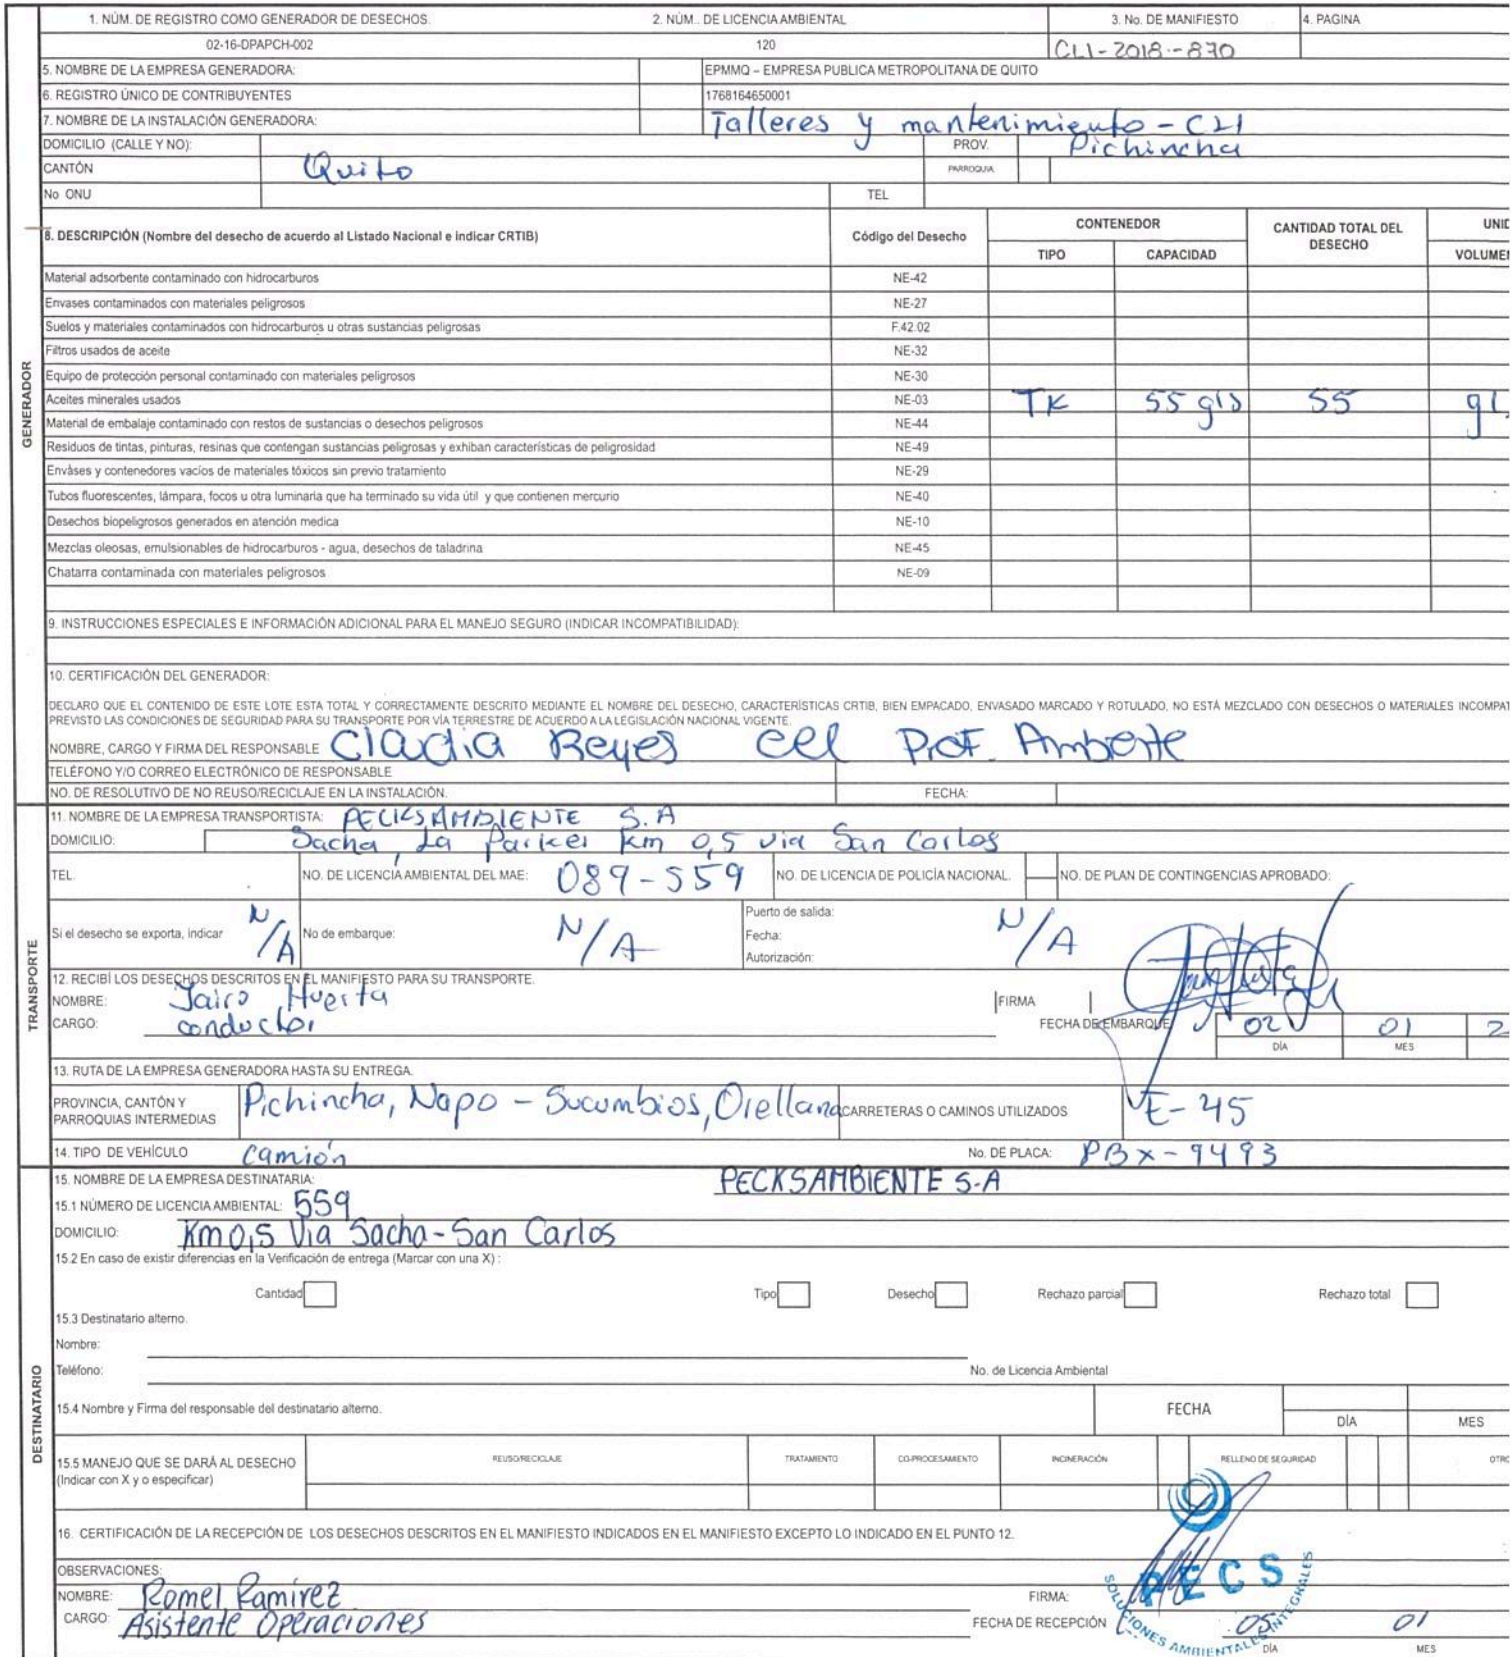 1. NÚM. DE REGISTRO COMO GENERADOR DE DESECHOS. 2. NÚM.. DE LICENCIA AMBIENTAL 3. No. DE MANIFIESTO 4. PAGINA
02-16-DPAPCH-002 120 CLI-2018-870
5. NOMBRE DE LA EMPRESA GENERADORA: EPMMQ – EMPRESA PUBLICA METROPOLITANA DE QUITO
6. REGISTRO ÚNICO DE CONTRIBUYENTES 1768164650001
7. NOMBRE DE LA INSTALACIÓN GENERADORA: Talleres y mantenimiento - CL1
DOMICILIO (CALLE Y NO): PROV. Pichincha
CANTÓN Quito PARROQUIA
No ONU TEL
8. DESCRIPCIÓN (Nombre del desecho de acuerdo al Listado Nacional e indicar CRTIB) Código del Desecho CONTENEDOR CANTIDAD TOTAL DEL DESECHO UNID
TIPO CAPACIDAD VOLUMEN
Material adsorbente contaminado con hidrocarburos NE-42
Envases contaminados con materiales peligrosos NE-27
Suelos y materiales contaminados con hidrocarburos u otras sustancias peligrosas F.42.02
Filtros usados de aceite NE-32
Equipo de protección personal contaminado con materiales peligrosos NE-30
Aceites minerales usados NE-03 TK 55 gls 55 gl
Material de embalaje contaminado con restos de sustancias o desechos peligrosos NE-44
Residuos de tintas, pinturas, resinas que contengan sustancias peligrosas y exhiban características de peligrosidad NE-49
Envàses y contenedores vacíos de materiales tóxicos sin previo tratamiento NE-29
Tubos fluorescentes, lámpara, focos u otra luminaria que ha terminado su vida útil y que contienen mercurio NE-40
Desechos biopeligrosos generados en atención medica NE-10
Mezclas oleosas, emulsionables de hidrocarburos - agua, desechos de taladrina NE-45
Chatarra contaminada con materiales peligrosos NE-09
9. INSTRUCCIONES ESPECIALES E INFORMACIÓN ADICIONAL PARA EL MANEJO SEGURO (INDICAR INCOMPATIBILIDAD):
10. CERTIFICACIÓN DEL GENERADOR:
DECLARO QUE EL CONTENIDO DE ESTE LOTE ESTA TOTAL Y CORRECTAMENTE DESCRITO MEDIANTE EL NOMBRE DEL DESECHO, CARACTERÍSTICAS CRTIB, BIEN EMPACADO, ENVASADO MARCADO Y ROTULADO, NO ESTÁ MEZCLADO CON DESECHOS O MATERIALES INCOMPAT
PREVISTO LAS CONDICIONES DE SEGURIDAD PARA SU TRANSPORTE POR VÍA TERRESTRE DE ACUERDO A LA LEGISLACIÓN NACIONAL VIGENTE.
NOMBRE, CARGO Y FIRMA DEL RESPONSABLE Claudia Reyes Prof. Ambiente
TELÉFONO Y/O CORREO ELECTRÓNICO DE RESPONSABLE
NO. DE RESOLUTIVO DE NO REUSO/RECICLAJE EN LA INSTALACIÓN. FECHA:
11. NOMBRE DE LA EMPRESA TRANSPORTISTA: PECKSAMBIENTE S.A
DOMICILIO: Sacha, La Parker Km 0,5 via San Carlos
TEL. NO. DE LICENCIA AMBIENTAL DEL MAE: 089-559 NO. DE LICENCIA DE POLICÍA NACIONAL. NO. DE PLAN DE CONTINGENCIAS APROBADO:
Si el desecho se exporta, indicar N/A No de embarque: N/A Puerto de salida: N/A
Fecha:
Autorización:
12. RECIBÍ LOS DESECHOS DESCRITOS EN EL MANIFIESTO PARA SU TRANSPORTE.
NOMBRE: Jairo Huerta FIRMA
CARGO: conductor FECHA DE EMBARQUE 02 01 2
DÍA MES
13. RUTA DE LA EMPRESA GENERADORA HASTA SU ENTREGA.
PROVINCIA, CANTÓN Y PARROQUIAS INTERMEDIAS Pichincha, Napo - Sucumbios, Orellana CARRETERAS O CAMINOS UTILIZADOS E-45
14. TIPO DE VEHÍCULO Camión No. DE PLACA: PBX-9493
15. NOMBRE DE LA EMPRESA DESTINATARIA: PECKSAMBIENTE S.A
15.1 NÚMERO DE LICENCIA AMBIENTAL: 559
DOMICILIO: Km 0,5 Via Sacha-San Carlos
15.2 En caso de existir diferencias en la Verificación de entrega (Marcar con una X) :
Cantidad Tipo Desecho Rechazo parcial Rechazo total
15.3 Destinatario alterno.
Nombre:
Teléfono: No. de Licencia Ambiental
15.4 Nombre y Firma del responsable del destinatario alterno. FECHA DÍA MES
15.5 MANEJO QUE SE DARÁ AL DESECHO (Indicar con X y o especificar) REUSO/RECICLAJE TRATAMIENTO CO-PROCESAMIENTO INCINERACIÓN RELLENO DE SEGURIDAD OTRO
16. CERTIFICACIÓN DE LA RECEPCIÓN DE LOS DESECHOS DESCRITOS EN EL MANIFIESTO INDICADOS EN EL MANIFIESTO EXCEPTO LO INDICADO EN EL PUNTO 12.
OBSERVACIONES:
NOMBRE: Romel Ramírez FIRMA:
CARGO: Asistente Operaciones FECHA DE RECEPCIÓN 05 01
DÍA MES
PECS
SOLUCIONES AMBIENTALES INTEGRALES
GENERADOR
TRANSPORTE
DESTINATARIO